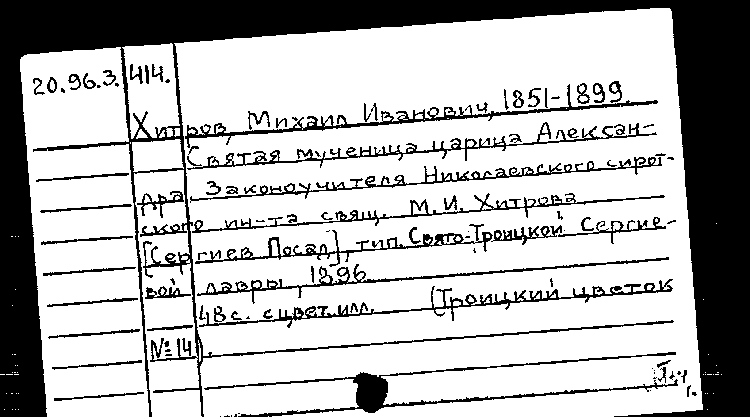 20.96.3. 414.
Хитров, Михаил Иванович, 1851-1899.
Святая мученица царица Алексан-
дра. Законоучителя Николаевского сирот-
ского ин-та свящ. М. И. Хитрова
[Сергиев Посад], тип. Свято-Троицкой Сергие-
вой лавры, 1896
48 с. с цвет. илл. (Троицкий цветок
№ 14).